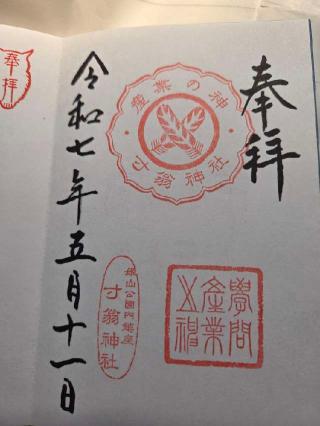 奉拝
産業の神
寸翁神社
學問
産業
之神
姫山公園内鎮座
寸翁神社
令和七年五月十一日
奉拝